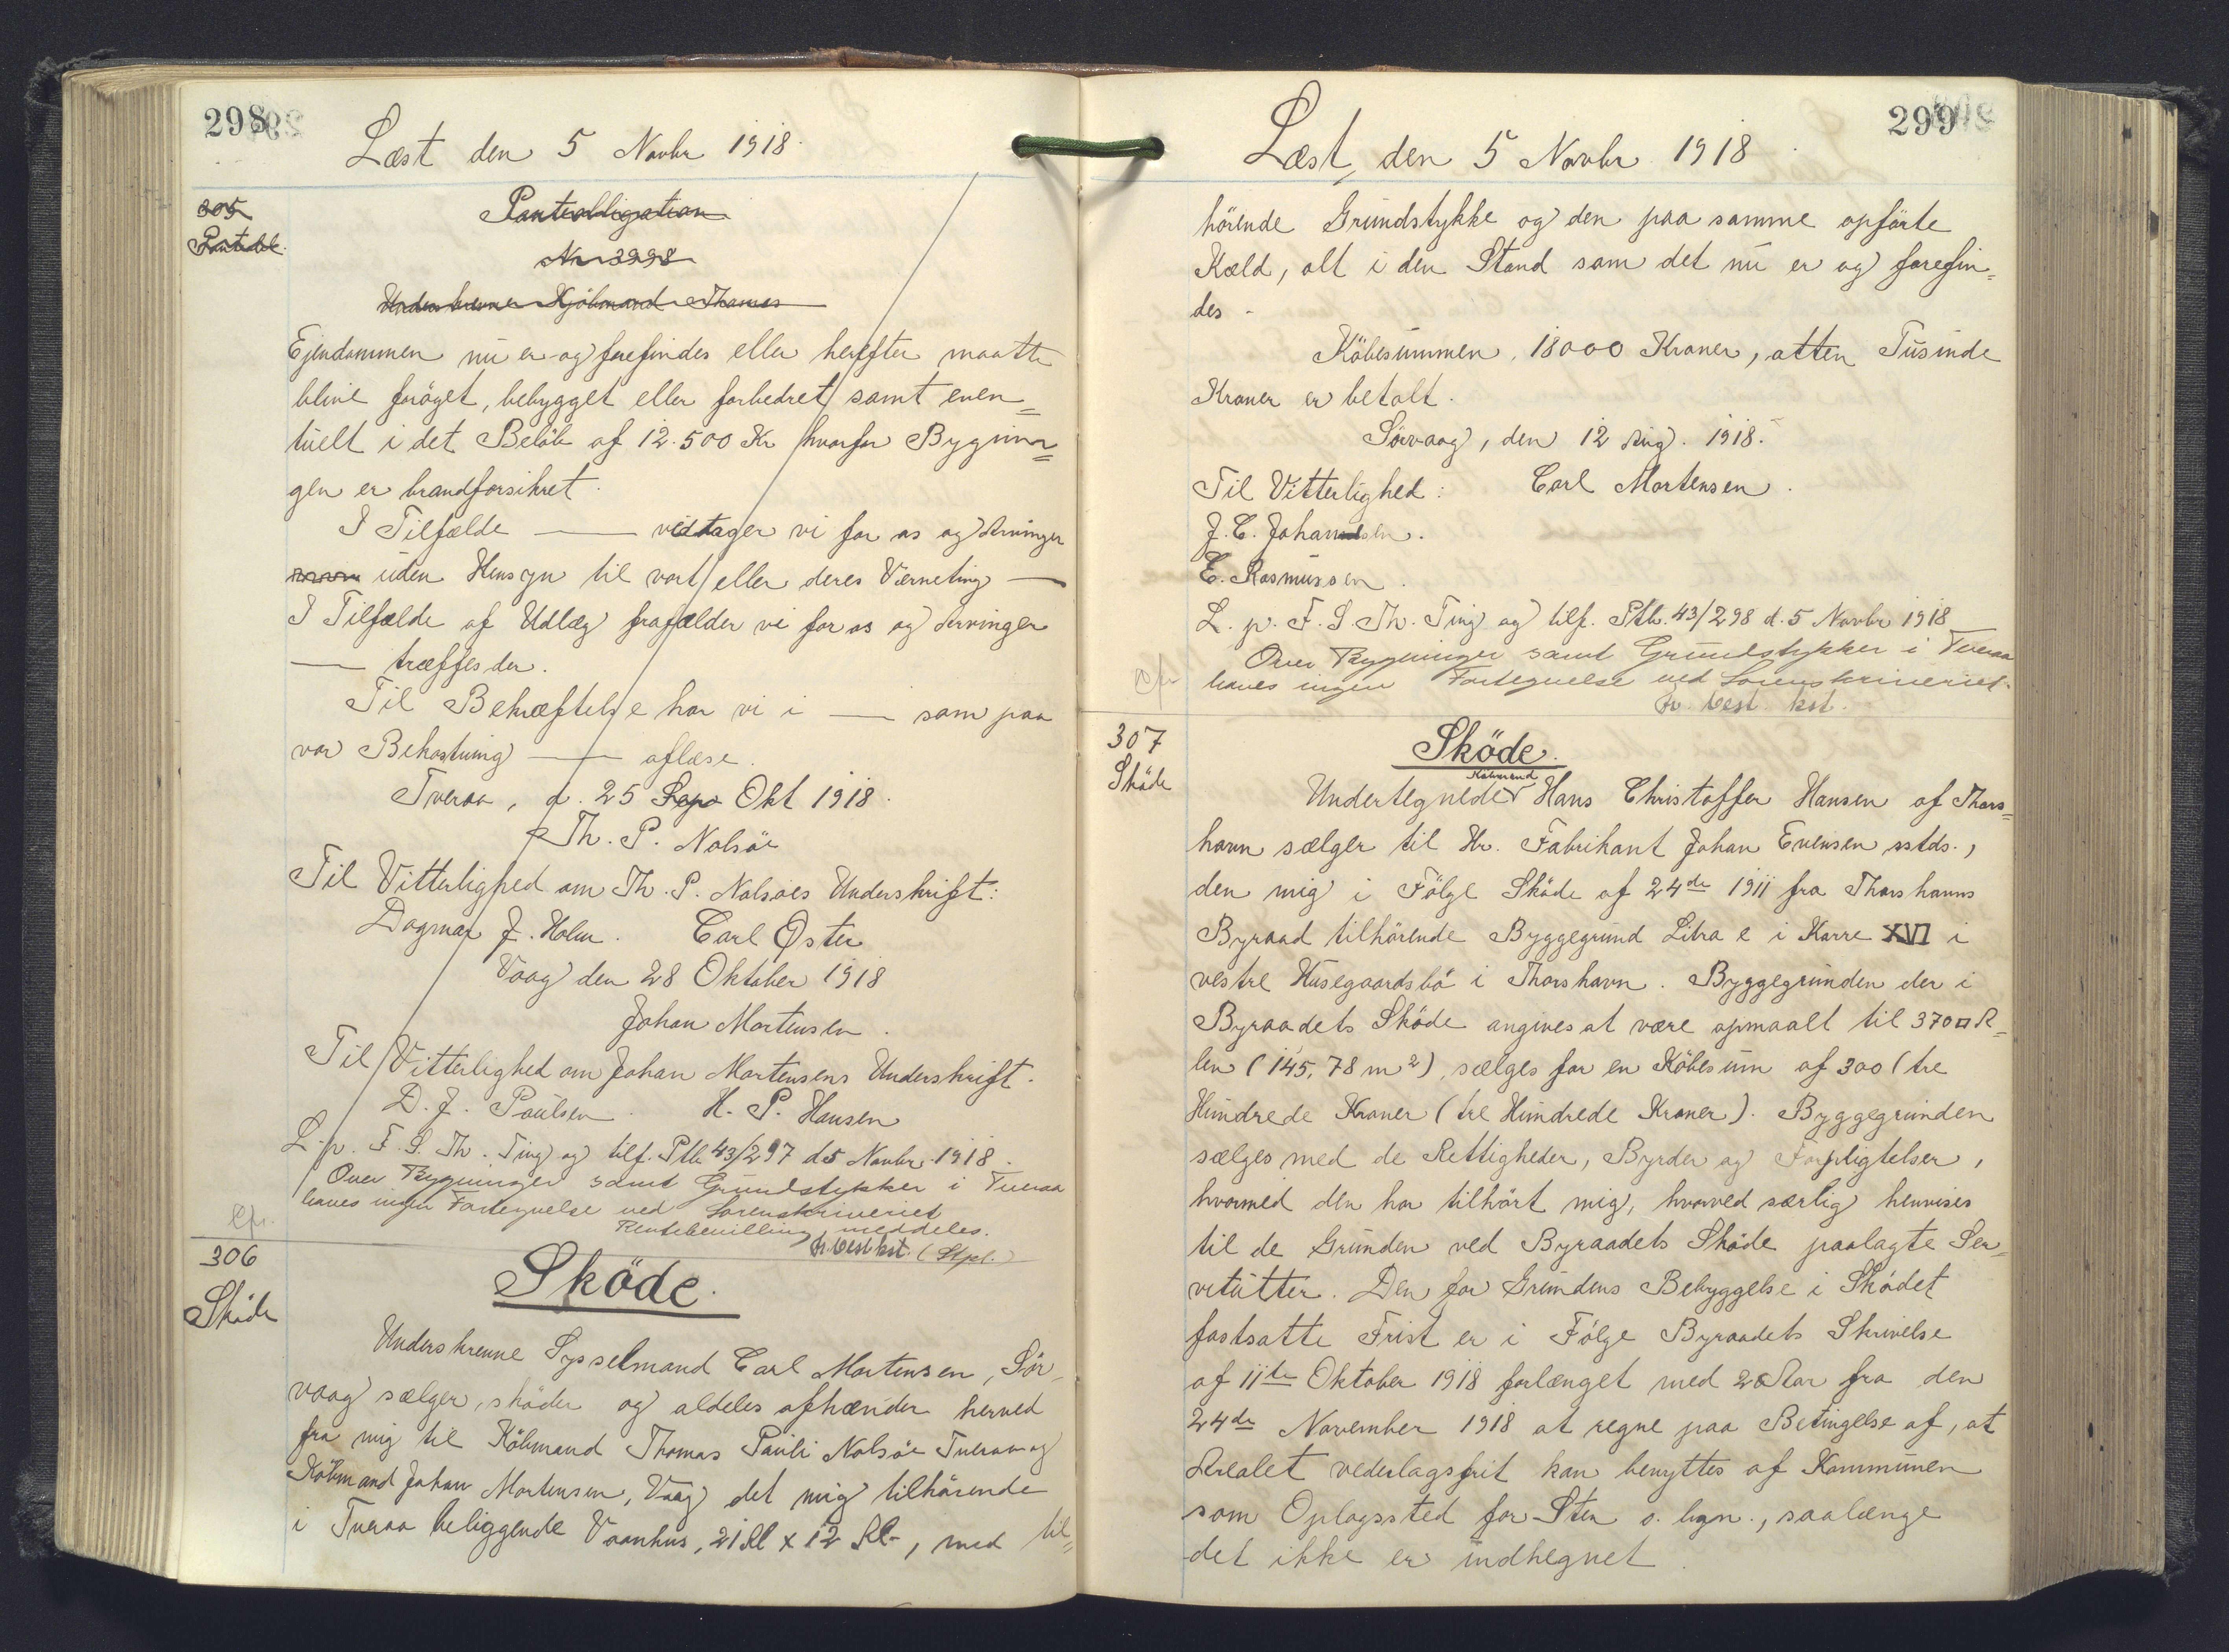 298
Læst den 5 Novbr 1918.
305
Pantobl.
Panteobligation
No 3998
Underskrevne Kjöbmand Thomas
Ejendommen nu er og forefindes eller herefter maatte
blive foröget, bebygget eller forbedret samt even=
tuelt i det Belöb af 12.500 Kr hvorfor Bygnin=
gen er brandforsikret.
I Tilfælde — vedtager vi for os og Arvinger
uden Hensyn til vort eller deres Værneting —
I Tilfælde af Udlæg frafalder vi for os og Arvinger
— træffes der.
Til Bekræftelse har vi i — som paa
vor Bekostning — aflæse.
Tveraa, d. 25 Okt 1918.
Th. P. Nolsöe
Til Vitterlighed om Th. P. Nolsöes Underskrift:
Dagmar J. Holm. Carl Øster
Vaag den 28 Oktober 1918
Johan Mortensen.
Til Vitterlighed om Johan Mortensens Underskrift.
D. J. Poulsen. H. P. Hansen
L. p. F. S. Th. Ting og tilf. Ptb 43/297 d 5 Novbr. 1918.
Over Bygninger samt Grundstykker i Tveraa
haves ingen Fortegnelse ved Sorenskriveriet
Rentebevilling meddeles.
Cfr.
kst. (Stpl.)
306
Sköde
Sköde.
Underskrevne Sysselmand Carl Mortensen, Sör-
vaag sælger, sköder og aldeles afhænder herved
fra mig til Köbmand Thomas Pauli Nolsöe Tveraa og
Köbmand Johan Mortensen, Vaag det mig tilhörende
i Tveraa beliggende Vaanhus, 21 Al x 12 Al-, med til=
299
Læst, den 5 Novbr 1918
hörende Grundstykke og den paa samme opförte
Kæld, alt i den Stand som det nu er og forefin=
des -
Köbesummen, 18000 Kroner, atten Tusinde
Kroner er betalt.
Sörvaag, den 12 Aug. 1918.
Til Vitterlighed: Carl Mortensen.
J. C. Johannesen.
E. Rasmussen.
L. p. F. S. Th. Ting og tilf. Ptb. 43/298 d. 5 Novbr 1918
Over Bygninger samt Grundstykker i Tveraa
haves ingen Fortegnelse ved Sorenskriveriet.
Cfr
kst.
307
Sköde
Sköde.
Undertegnede Köbmand Hans Christoffer Hansen af Thors=
havn sælger til Hr. Fabrikant Johan Evensen sstds.,
den mig i Fölge Sköde af 24de 1911 fra Thorshavns
Byraad tilhörende Byggegrund Litra e i Karre XVI i
vestre Husegaardsbö i Thorshavn. Byggegrunden der i
Byraadets Sköde angives at være opmaalt til 370 □ A-
len (145,78 m2), sælges for en Köbesum af 300 (tre
Hundrede Kroner (tre Hundrede Kroner). Byggegrunden
sælges med de Rettigheder, Byrder og Forpligtelser,
hvormed den har tilhört mig, hvorved særlig henvises
til de Grunden ved Byraadets Sköde paalagte Ser-
vitutter. Den for Grundens Bebyggelse i Sködet
fastsatte Frist er i Fölge Byraadets Skrivelse
af 11te Oktober 1918 forlænget med 2 Aar fra den
24de November 1918 at regne paa Betingelse af, at
Arealet vederlagsfrit kan benyttes af Kommunen
som Oplagssted for Sten o. lign., saalænge
det ikke er indhegnet.